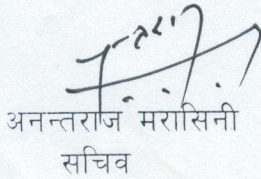 अनन्तराज मरासिनी
सचिव